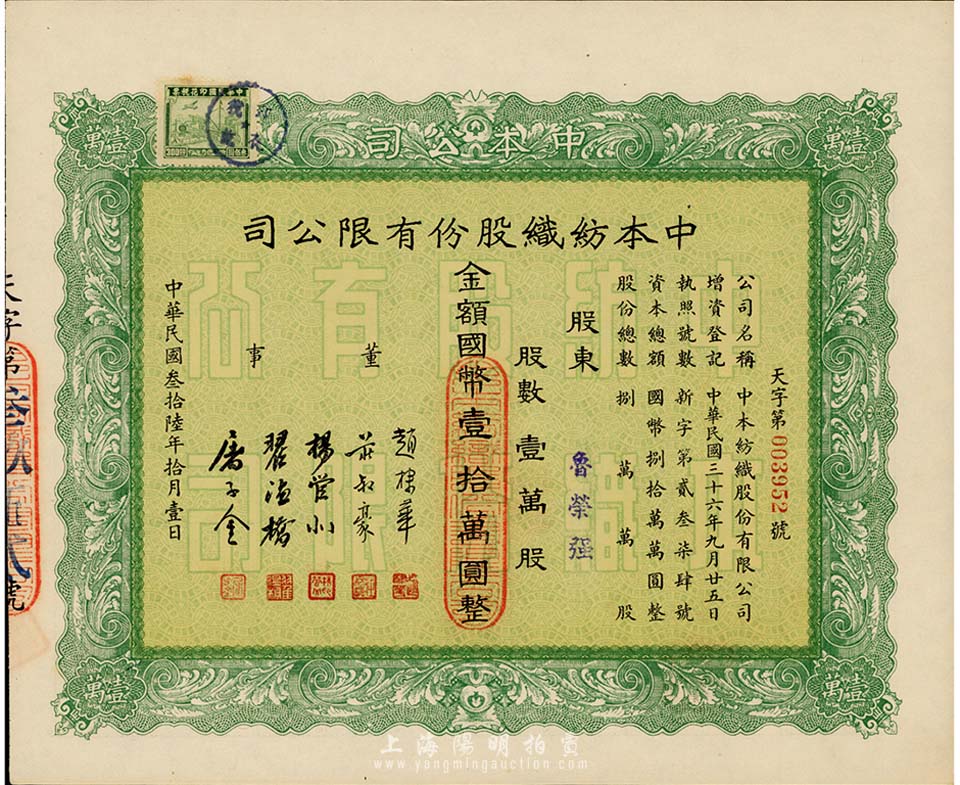 中華民國印花稅票
中本公司
壹萬
壹萬
中本紡織股份有限公司
天字第003952號
公司名稱 中本紡織股份有限公司
增資登記 中華民國三十六年九月廿五日
執照號數 新字第貳叁柒肆號
資本總額 國幣捌拾萬萬圓整
股份總數 捌萬萬股
股東 魯榮強
股數 壹萬股
金額國幣壹拾萬圓整
董事
趙棣華
莊叔豪
楊管北
翟溫橋
屠子金
中華民國叁拾陸年拾月壹日
壹萬
壹萬
上海陽明拍賣
www.yangmingauction.com